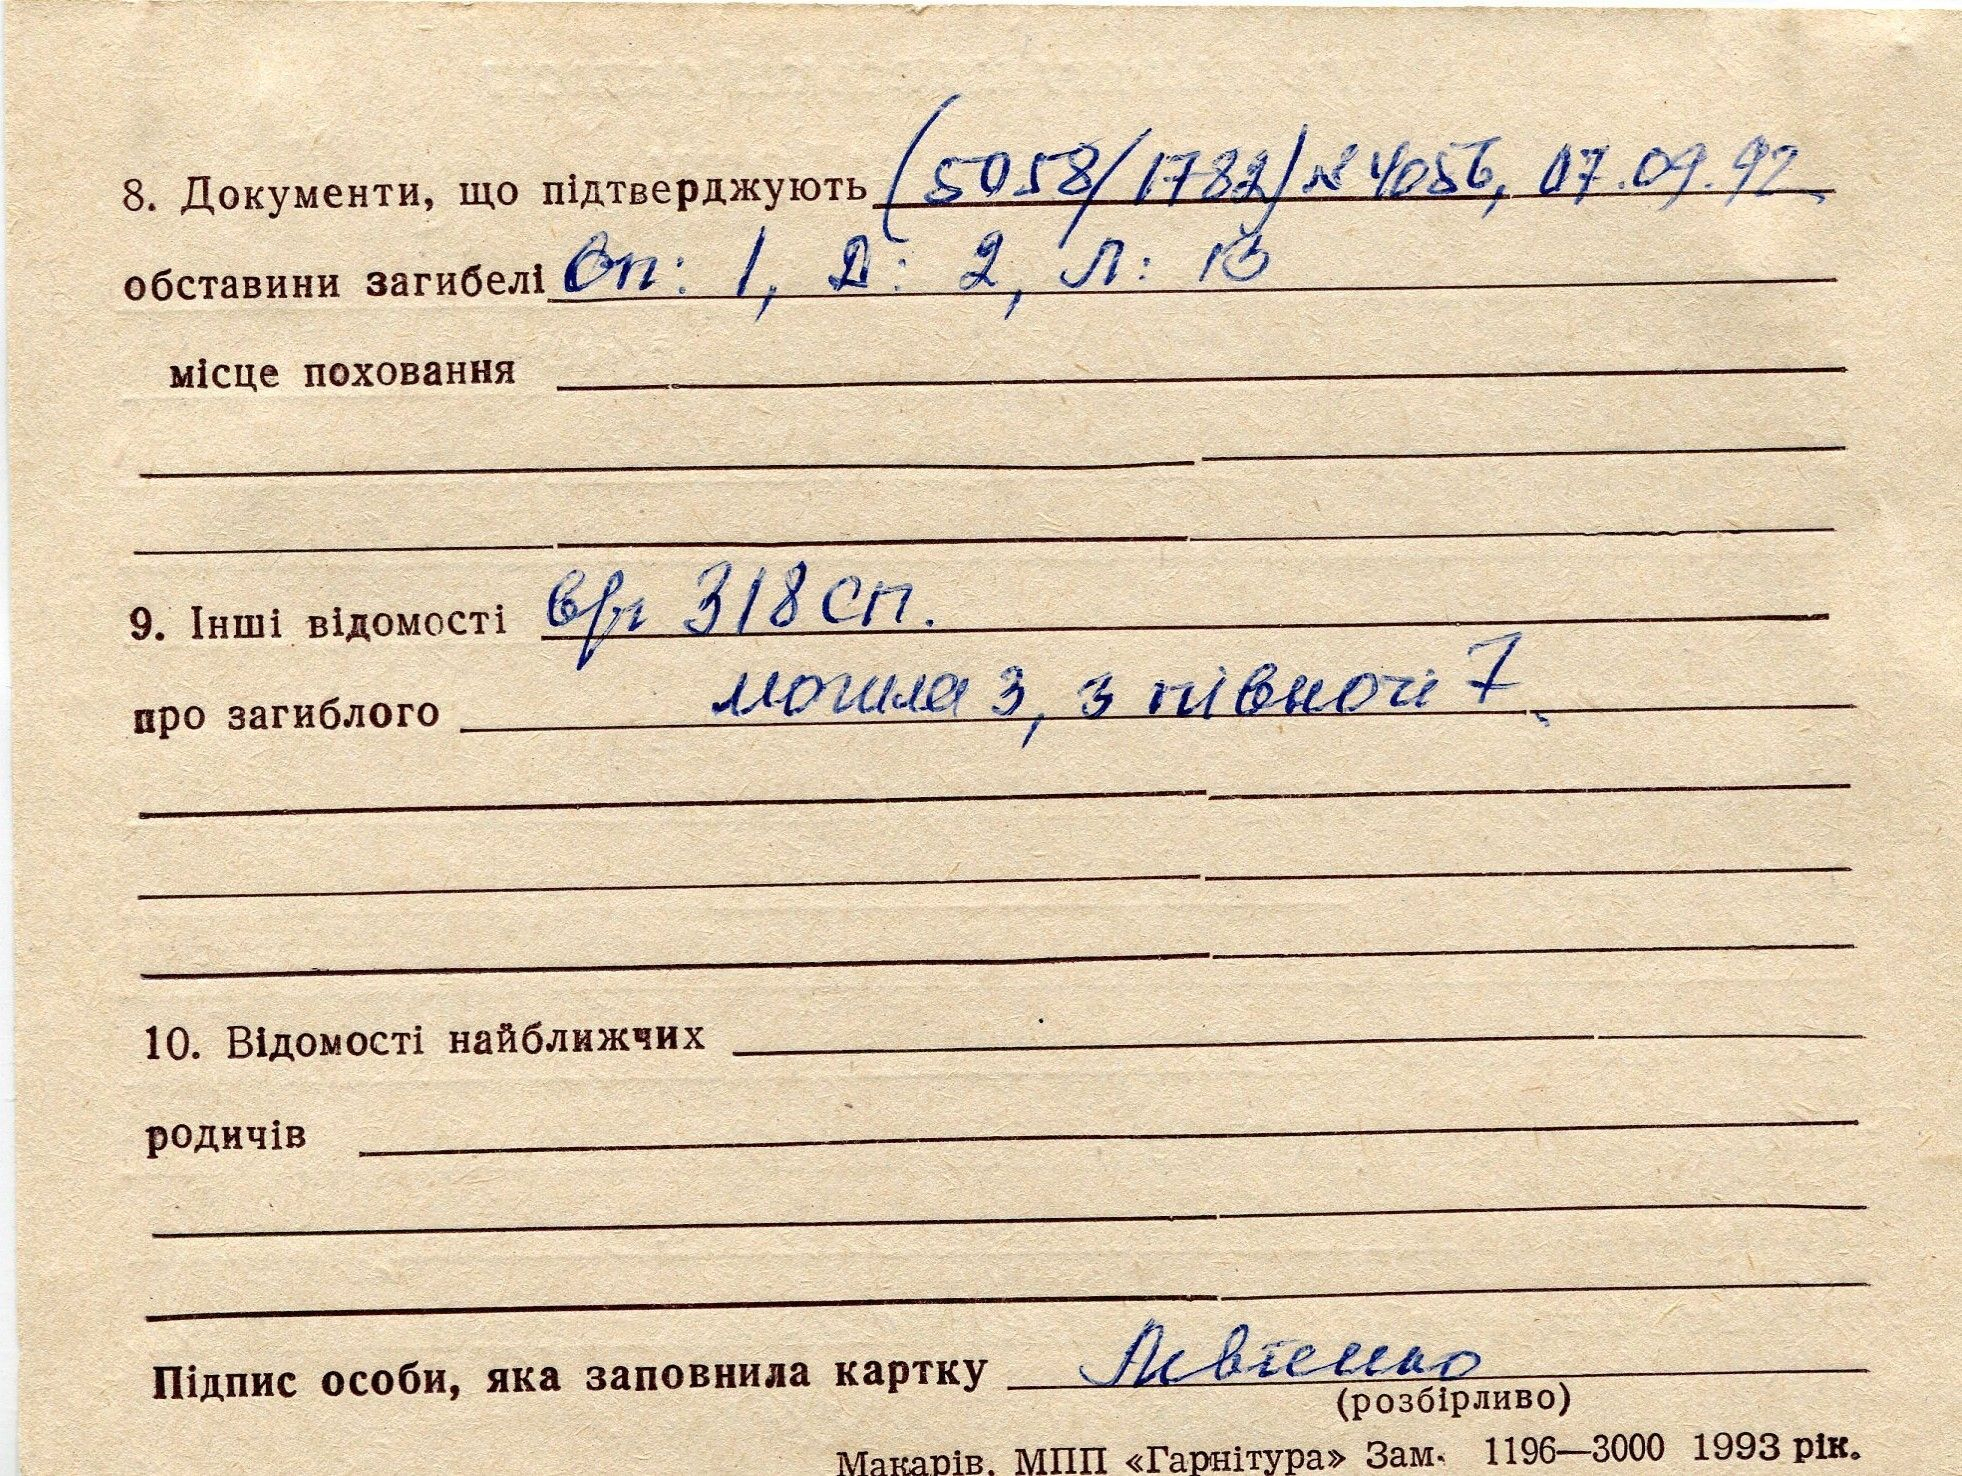 8. Документи, що підтверджують (5058/1782) № 4056, 07.09.92
обставини загибелі Оп: 1, Д: 2, Л: 13
місце поховання
9. Інші відомості 318 сп.
про загиблого могила 3, з півночі 7
10. Відомості найближчих
родичів
Підпис особи, яка заповнила картку
(розбірливо)
Макарів, МПП «Гарнітура» Зам. 1196—3000 1993 рік.